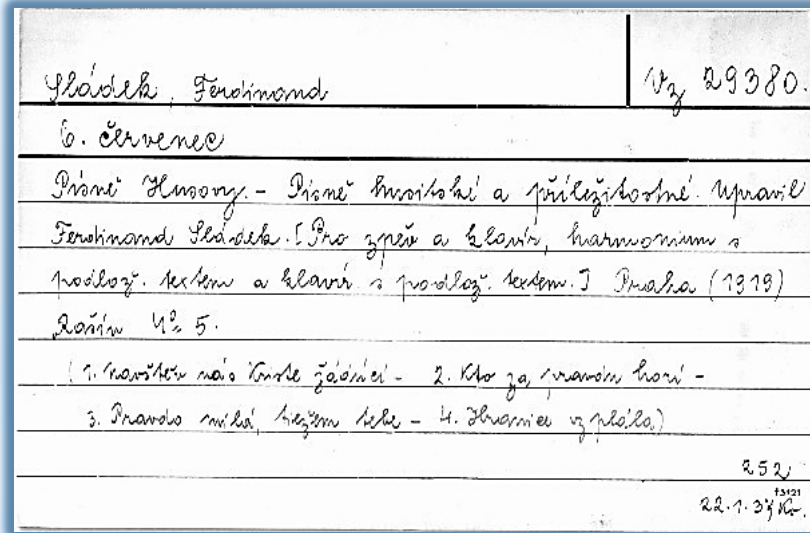 Sládek, Ferdinand Vz 29380.
6. červenec
Písně Husovy. – Písně husitské a příležitostné. Upravil
Ferdinand Sládek. [Pro zpěv a klavír, harmonium s
podlož. textem a klavír s podlož. textem.] Praha (1919)
Rašín 4° 5.
(1. Navštěv nás Kriste žádúcí – 2. Kto za pravdu horí –
3. Pravdo milá, tiežem tebe – 4. Hranice vzplála)
252
13121
22.1.37 Kr.